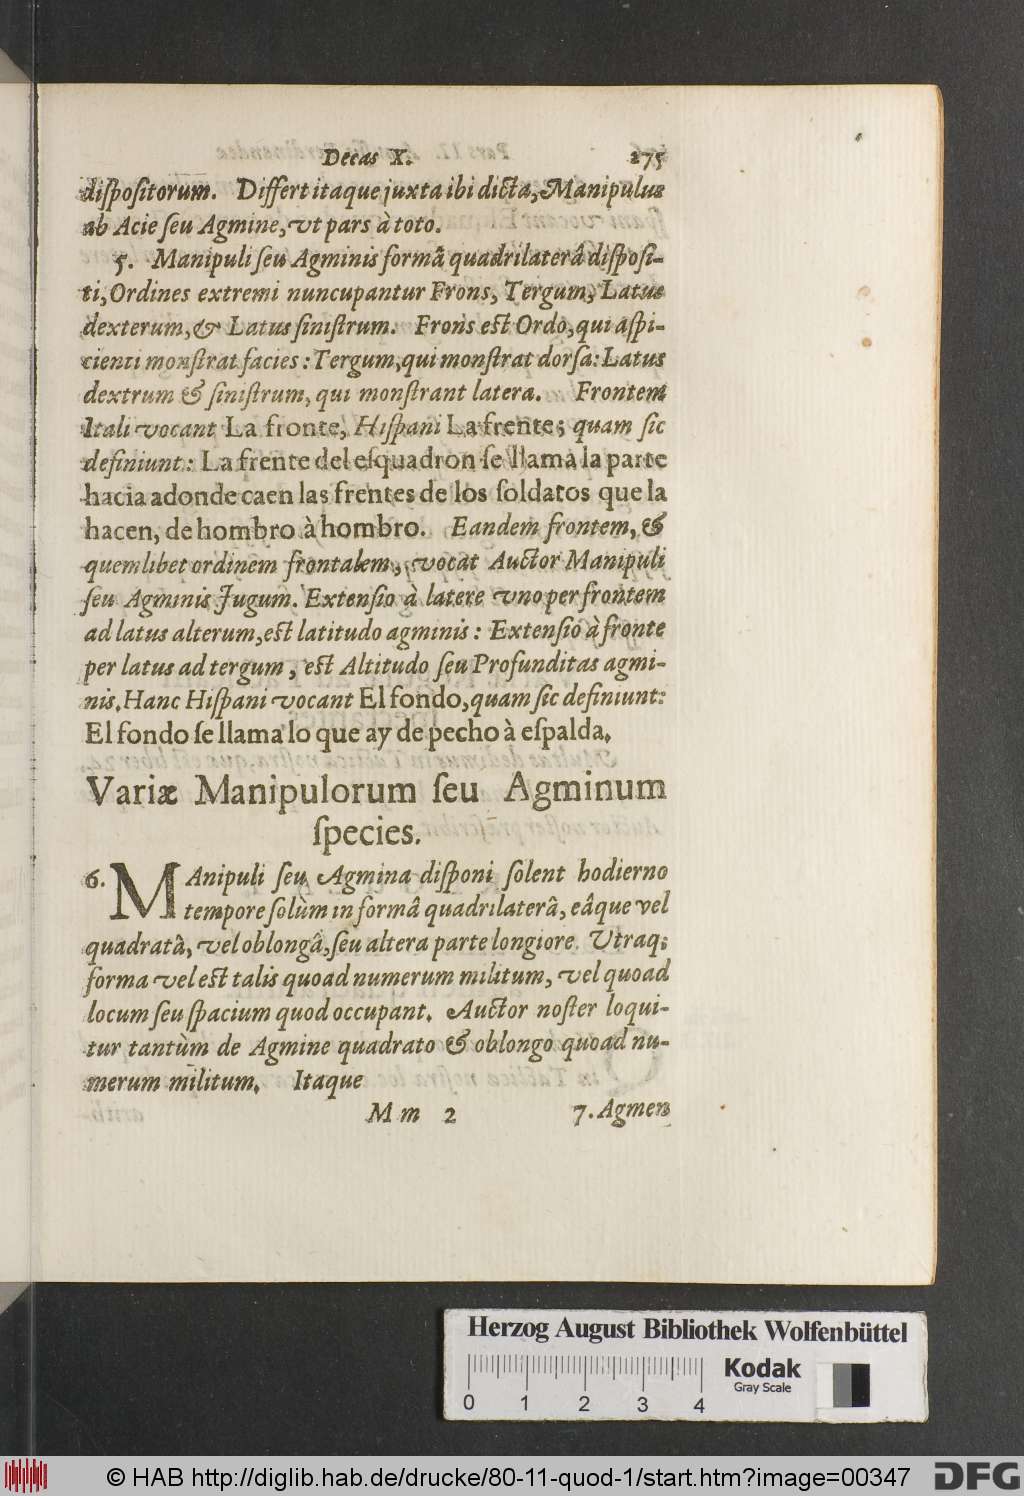 Decas X. 275
diſpoſitorum. Differt itaque juxta ibi dicta, Manipulus
ab Acie ſeu Agmine, vt pars à toto.
5. Manipuli ſeu Agminis formâ quadrilaterâ diſpoſi-
ti, Ordines extremi nuncupantur Frons, Tergum, Latus
dexterum, & Latus ſiniſtrum. Frons eſt Ordo, qui aſpi-
cienti monſtrat facies: Tergum, qui monſtrat dorſa: Latus
dextrum & ſiniſtrum, qui monſtrant latera. Frontem
Itali vocant La fronte, Hiſpani La frente; quam ſic
definiunt: La frente del eſquadron ſe llama la parte
hacia adonde caen las frentes de los ſoldatos que la
hacen, de hombro à hombro. Eandem frontem, &
quemlibet ordinem frontalem, vocat Auctor Manipuli
ſeu Agminis Jugum. Extenſio à latere vno per frontem
ad latus alterum, eſt latitudo agminis: Extenſio à fronte
per latus ad tergum, eſt Altitudo ſeu Profunditas agmi-
nis. Hanc Hiſpani vocant El fondo, quam ſic definiunt:
El fondo ſe llama lo que ay de pecho à eſpalda.
Variæ Manipulorum ſeu Agminum
ſpecies.
6. MAnipuli ſeu Agmina diſponi ſolent hodierno
tempore ſolùm in formâ quadrilaterâ, eâque vel
quadratâ, vel oblongâ, ſeu altera parte longiore. Utraq;
forma vel eſt talis quoad numerum militum, vel quoad
locum ſeu ſpacium quod occupant. Auctor noſter loqui-
tur tantùm de Agmine quadrato & oblongo quoad nu-
merum militum. Itaque
M m 2 7. Agmen
Herzog August Bibliothek Wolfenbüttel
0 1 2 3 4
Kodak
Gray Scale
© HAB http://diglib.hab.de/drucke/80-11-quod-1/start.htm?image=00347
DFG